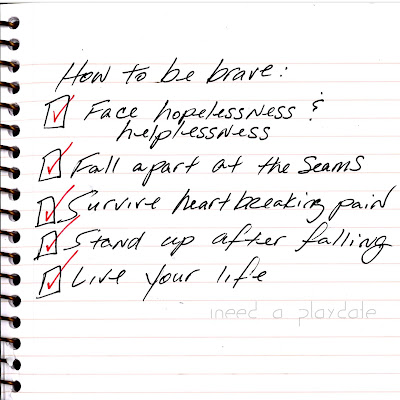 How to be brave:
Face hopelessness &
helplessness
Fall apart at the seams
Survive heartbreaking pain
Stand up after falling
Live your life
ineed a playdate